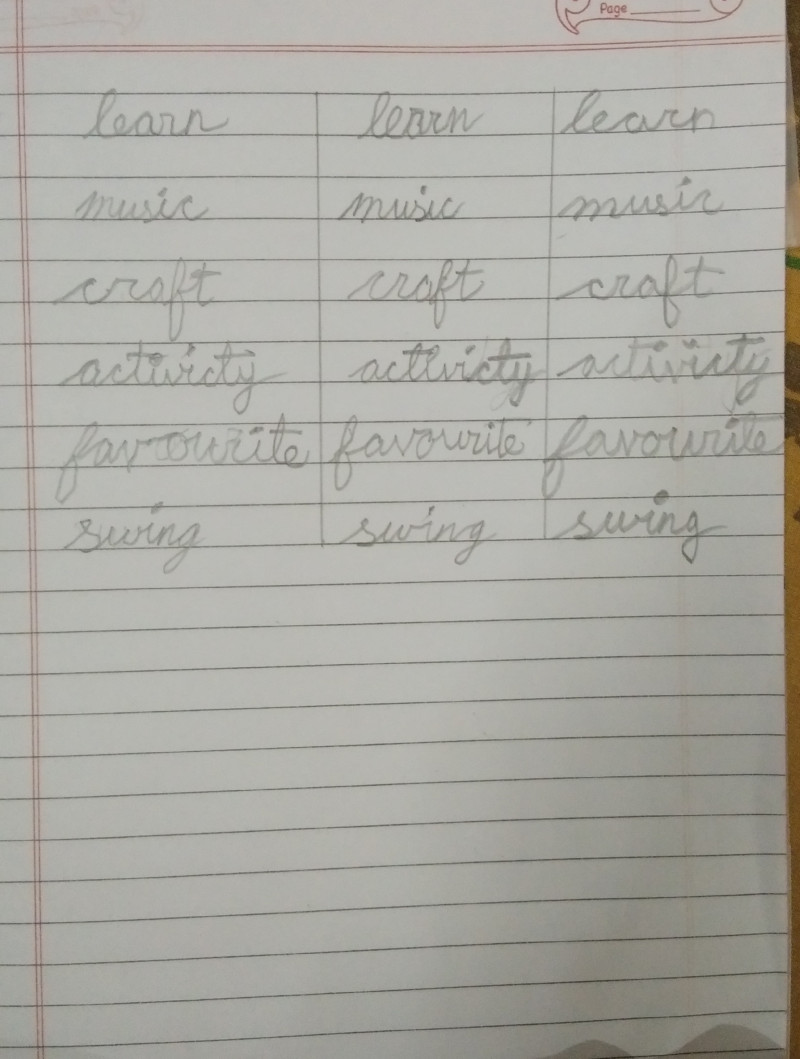 Page
learn learn learn
music music music
craft craft craft
activicty acttvicty activicty
favourite favourite favourite
swing swing swing